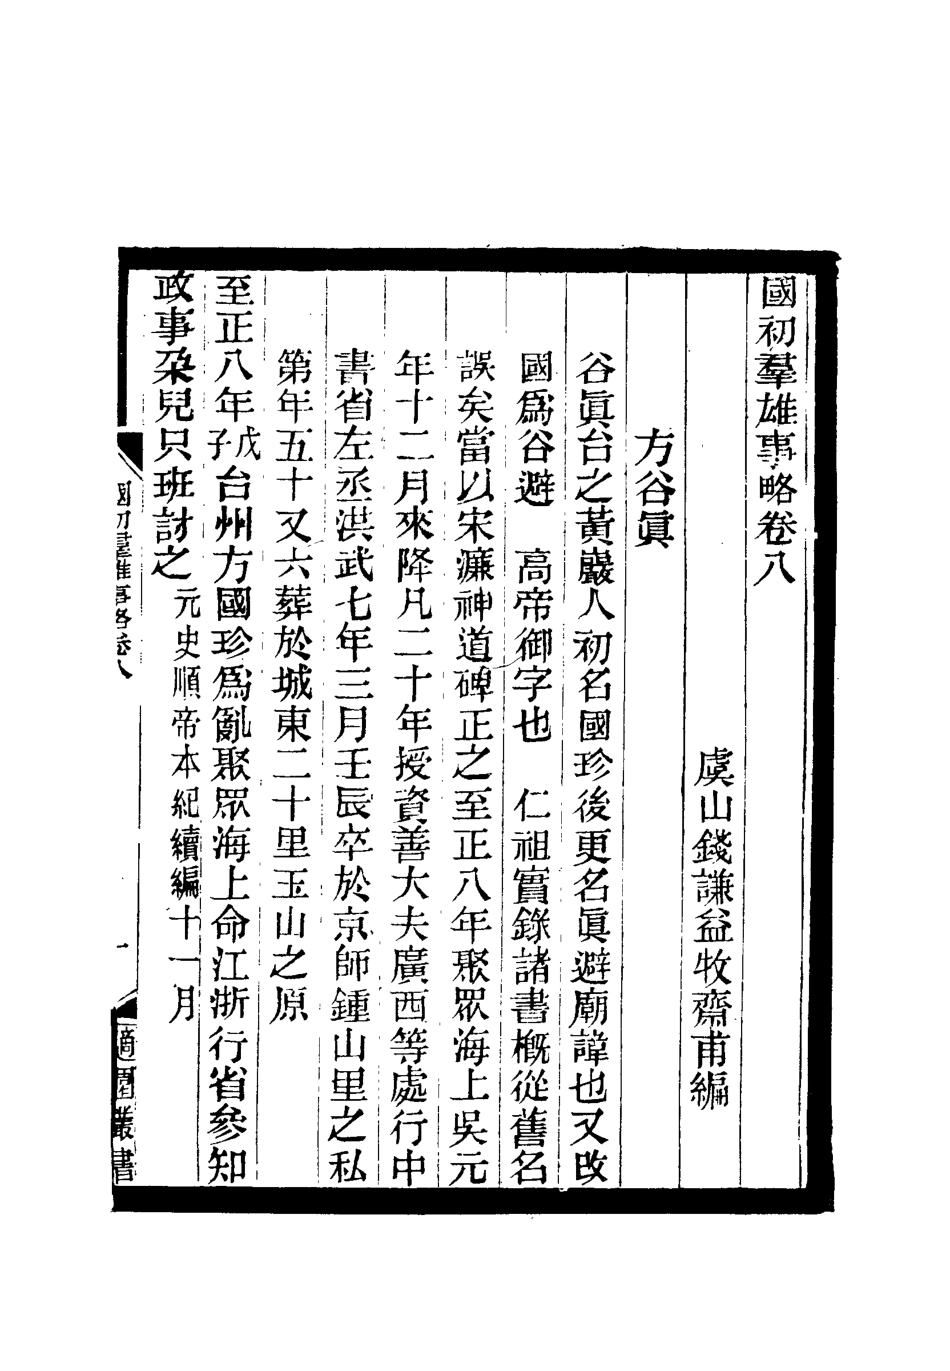 國初羣雄事略卷八
虞山錢謙益牧齋甫編
方谷眞
谷眞台之黃巖人初名國珍後更名眞避廟諱也又改
國爲谷避　高帝御字也　仁祖實錄諸書槪從舊名
誤矣當以宋濂神道碑正之至正八年聚眾海上吳元
年十二月來降凡二十年授資善大夫廣西等處行中
書省左丞洪武七年三月壬辰卒於京師鍾山里之私
第年五十又六葬於城東二十里玉山之原
至正八年戊子台州方國珍爲亂聚眾海上命江浙行省參知
政事朶兒只班討之元史順帝本紀續編十一月
國初羣雄事略卷八
一
適園叢書